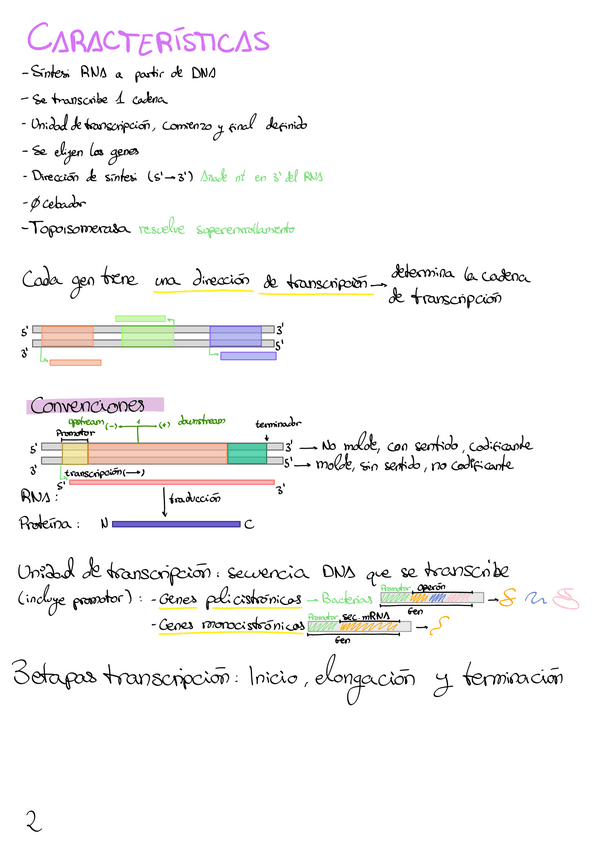 CARACTERÍSTICAS
- Síntesi RNA a partir de DNA
- Se transcribe 1 cadena
- Unidad de transcripción, comienzo y final definido
- Se elijen los genes
- Dirección de síntesi (5'→3') Añade nt en 3' del RNA
- Ø cebador
- Topoisomerasa resuelve superenrollamiento
Cada gen tiene una dirección de transcripción → determina la cadena
de transcripción
5' 3'
3' 5'
Convenciones
upstream (-) 1 (+) downstream
Promotor terminador
5' 3' → No molde, con sentido, codificante
3' 5' → molde, sin sentido, no codificante
transcripción (→)
5' 3'
RNA:
traducción
Proteína: N C
Unidad de transcripción: secuencia DNA que se transcribe
(incluye promotor): - Genes policistrónicos → Bacterias Promotor operón
Gen
- Genes monocistrónicos Promotor sec. mRNA
Gen
3 etapas transcripción: Inicio, elongación y terminación
2